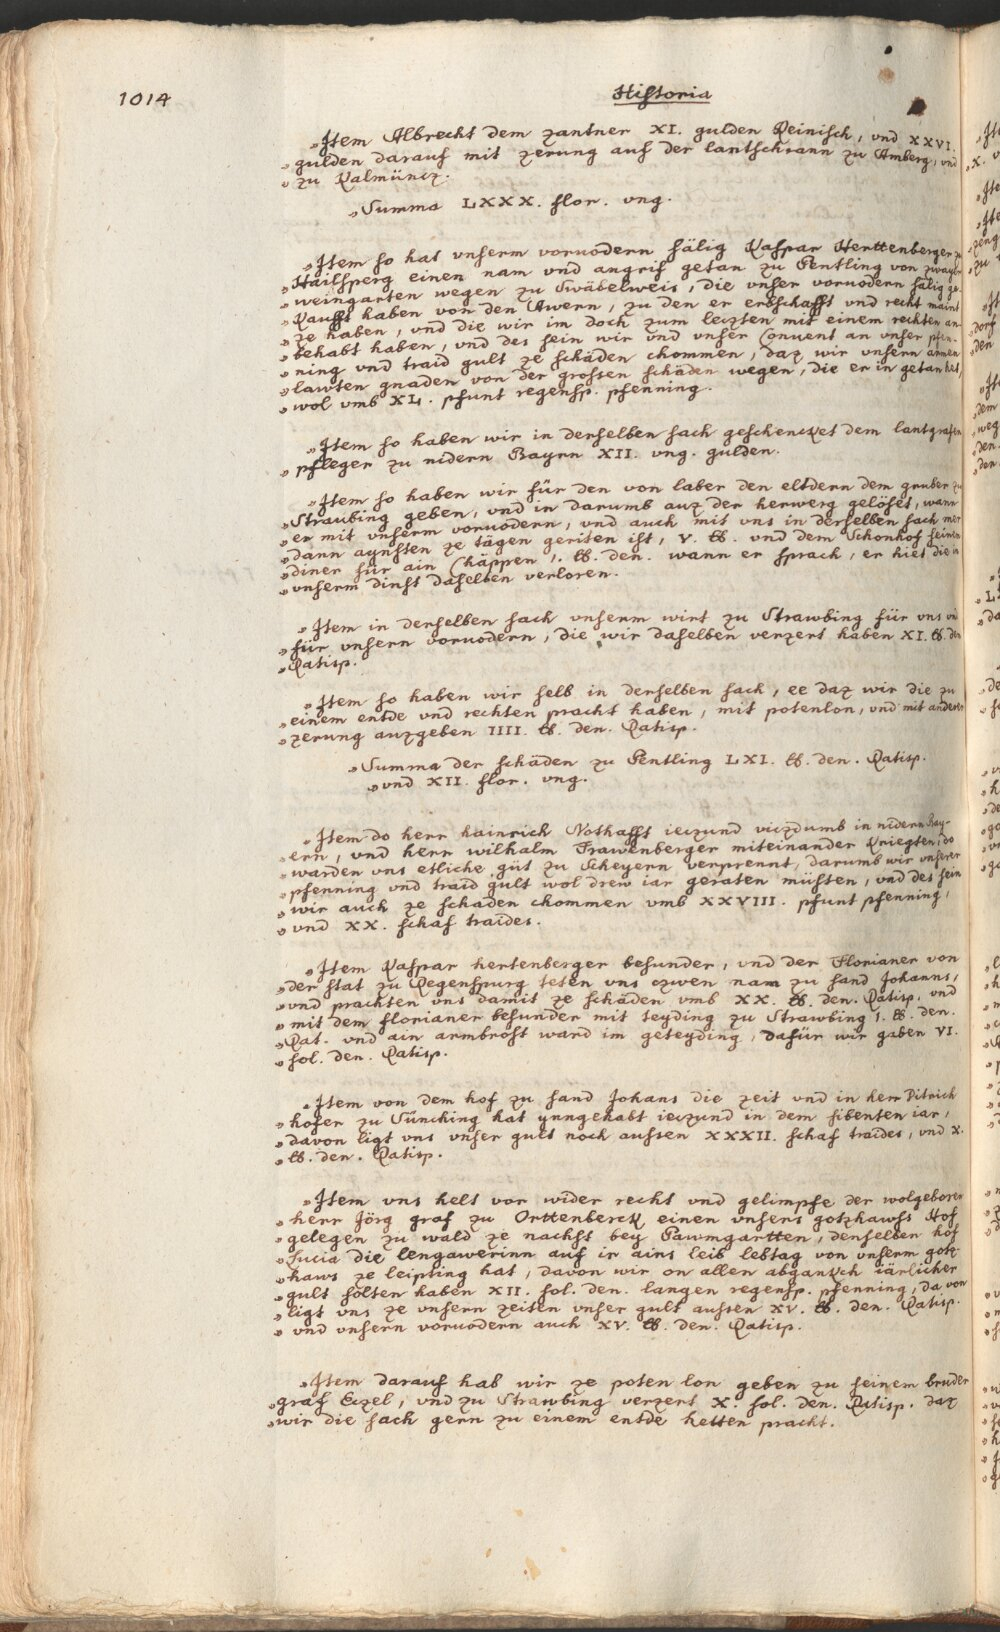 1014
Historia
»Item Albrecht dem zantner XI. gulden Reinisch, vnd XXVI.
»gulden darauf mit zerung auf der lantschrann zu Amberg, vnd
»zu Kalmüncz.
»Summa LXXX. flor. vng.
»Item so hat vnserm voruodern sälig Kaspar Herttenberger zu
»Hailsperg einen nam vnd angrif getan zu Pentling von zwayer
»weingarten wegen zu Swäbelweis, die vnser voruodern sälig ge-
»kaufft haben von den Awern, zu den er erbschafft vnd recht maint
»ze haben, vnd die wir im doch zum leczten mit einem rechten an-
»behabt haben, vnd des sein wir vnd vnser Conuent an vnser pfen-
»ning vnd traid gult ze schäden chommen, daz wir vnsern armen
»lawten gnaden von der grossen schäden wegen, die er in getan het,
»wol vmb XL. pfunt regensp. pfenning.
»Item so haben wir in derselben sach geschencket dem lantgrafen
»pfleger zu nidern Bayrn XII. vng. gulden.
»Item so haben wir für den von laber den eltdern dem gruber zu
»Straubing geben, vnd in darumb auz der herwerg gelöset, wann
»er mit vnserm voruodern, vnd auch mit vns in derselben sach mer
»dann aynsten ze tägen geriten ist, V. ℔. vnd dem Schonhof seinem
»diner für ain Chäppen I. ℔. den. wann er sprach, er hiet die in
»vnserm dinst daselben verloren.
»Item in derselben sach vnserm wirt zu Strawbing für vns vnd
»für vnsern voruodern, die wir daselben verzert haben XI. ℔. den.
»Ratisp.
»Item so haben wir selb in derselben sach, ee daz wir die zu
»einem entde vnd rechten pracht haben, mit potenlon, vnd mit anderer
»zerung auzgeben IIII. ℔. den. Ratisp.
»Summa der schäden zu Pentling LXI. ℔. den. Ratisp.
»vnd XII. flor. vng.
»Item do herr hainrich Nothafft ieczund viczdumb in nidern Bay-
»ern, vnd herr wilhalm Frawenberger miteinander kriegten, do
»warden vns etliche güt zu Scheyern verprennt, darumb wir vnserer
»pfenning vnd traid gult wol drew iar geraten müsten, vnd des sein
»wir auch ze schaden chommen vmb XXVIII. pfunt pfenning,
»vnd XX. schaf traides.
»Item Kaspar hertenberger besunder, vnd der Florianer von
»der stat zu Regenspurg teten vns czwen nam zu sand Johanns,
»vnd prachten vns damit ze schäden vmb XX. ℔. den. Ratisp. vnd
»mit dem florianer besunder mit teyding zu Strawbing I. ℔. den.
»Rat. vnd ain armbrost ward im geteyding, dafür wir gaben VI.
»sol. den. Ratisp.
»Item von dem hof zu sand Johans die zeit vnd in herr Ditrich
»hofer zu Sünching hat ynngehabt ieczund in dem sibenten iar,
»davon ligt vns vnser gult noch aussen XXXII. schaf traides, vnd X.
»℔. den. Ratisp.
»Item vns helt vor wider recht vnd gelimpfe der wolgeboren
»herr Jörg graf zu Orttenberck einen vnsers gotzhawss Hof
»gelegen zu wald ze nachst bey Pawmgartten, denselben hof
»Lucia die lengawerinn auf ir ains leib lebtag von vnserm gotz-
»haws ze leipting hat, davon wir on allen abgankch iärlicher
»gult solten haben XII. sol. den. langen regensp. pfenning, da von
»ligt vns ze vnsern zeiten vnser gult aussen XV. ℔. den. Ratisp.
»vnd vnsern voruodern auch XV. ℔. den. Ratisp.
»Item darauf hab wir ze poten lon geben zu seinem bruder
»graf Eczel, vnd zu Strawbing verzert X. sol. den. Ratisp. daz
»wir die sach gern zu einem entde hetten pracht.